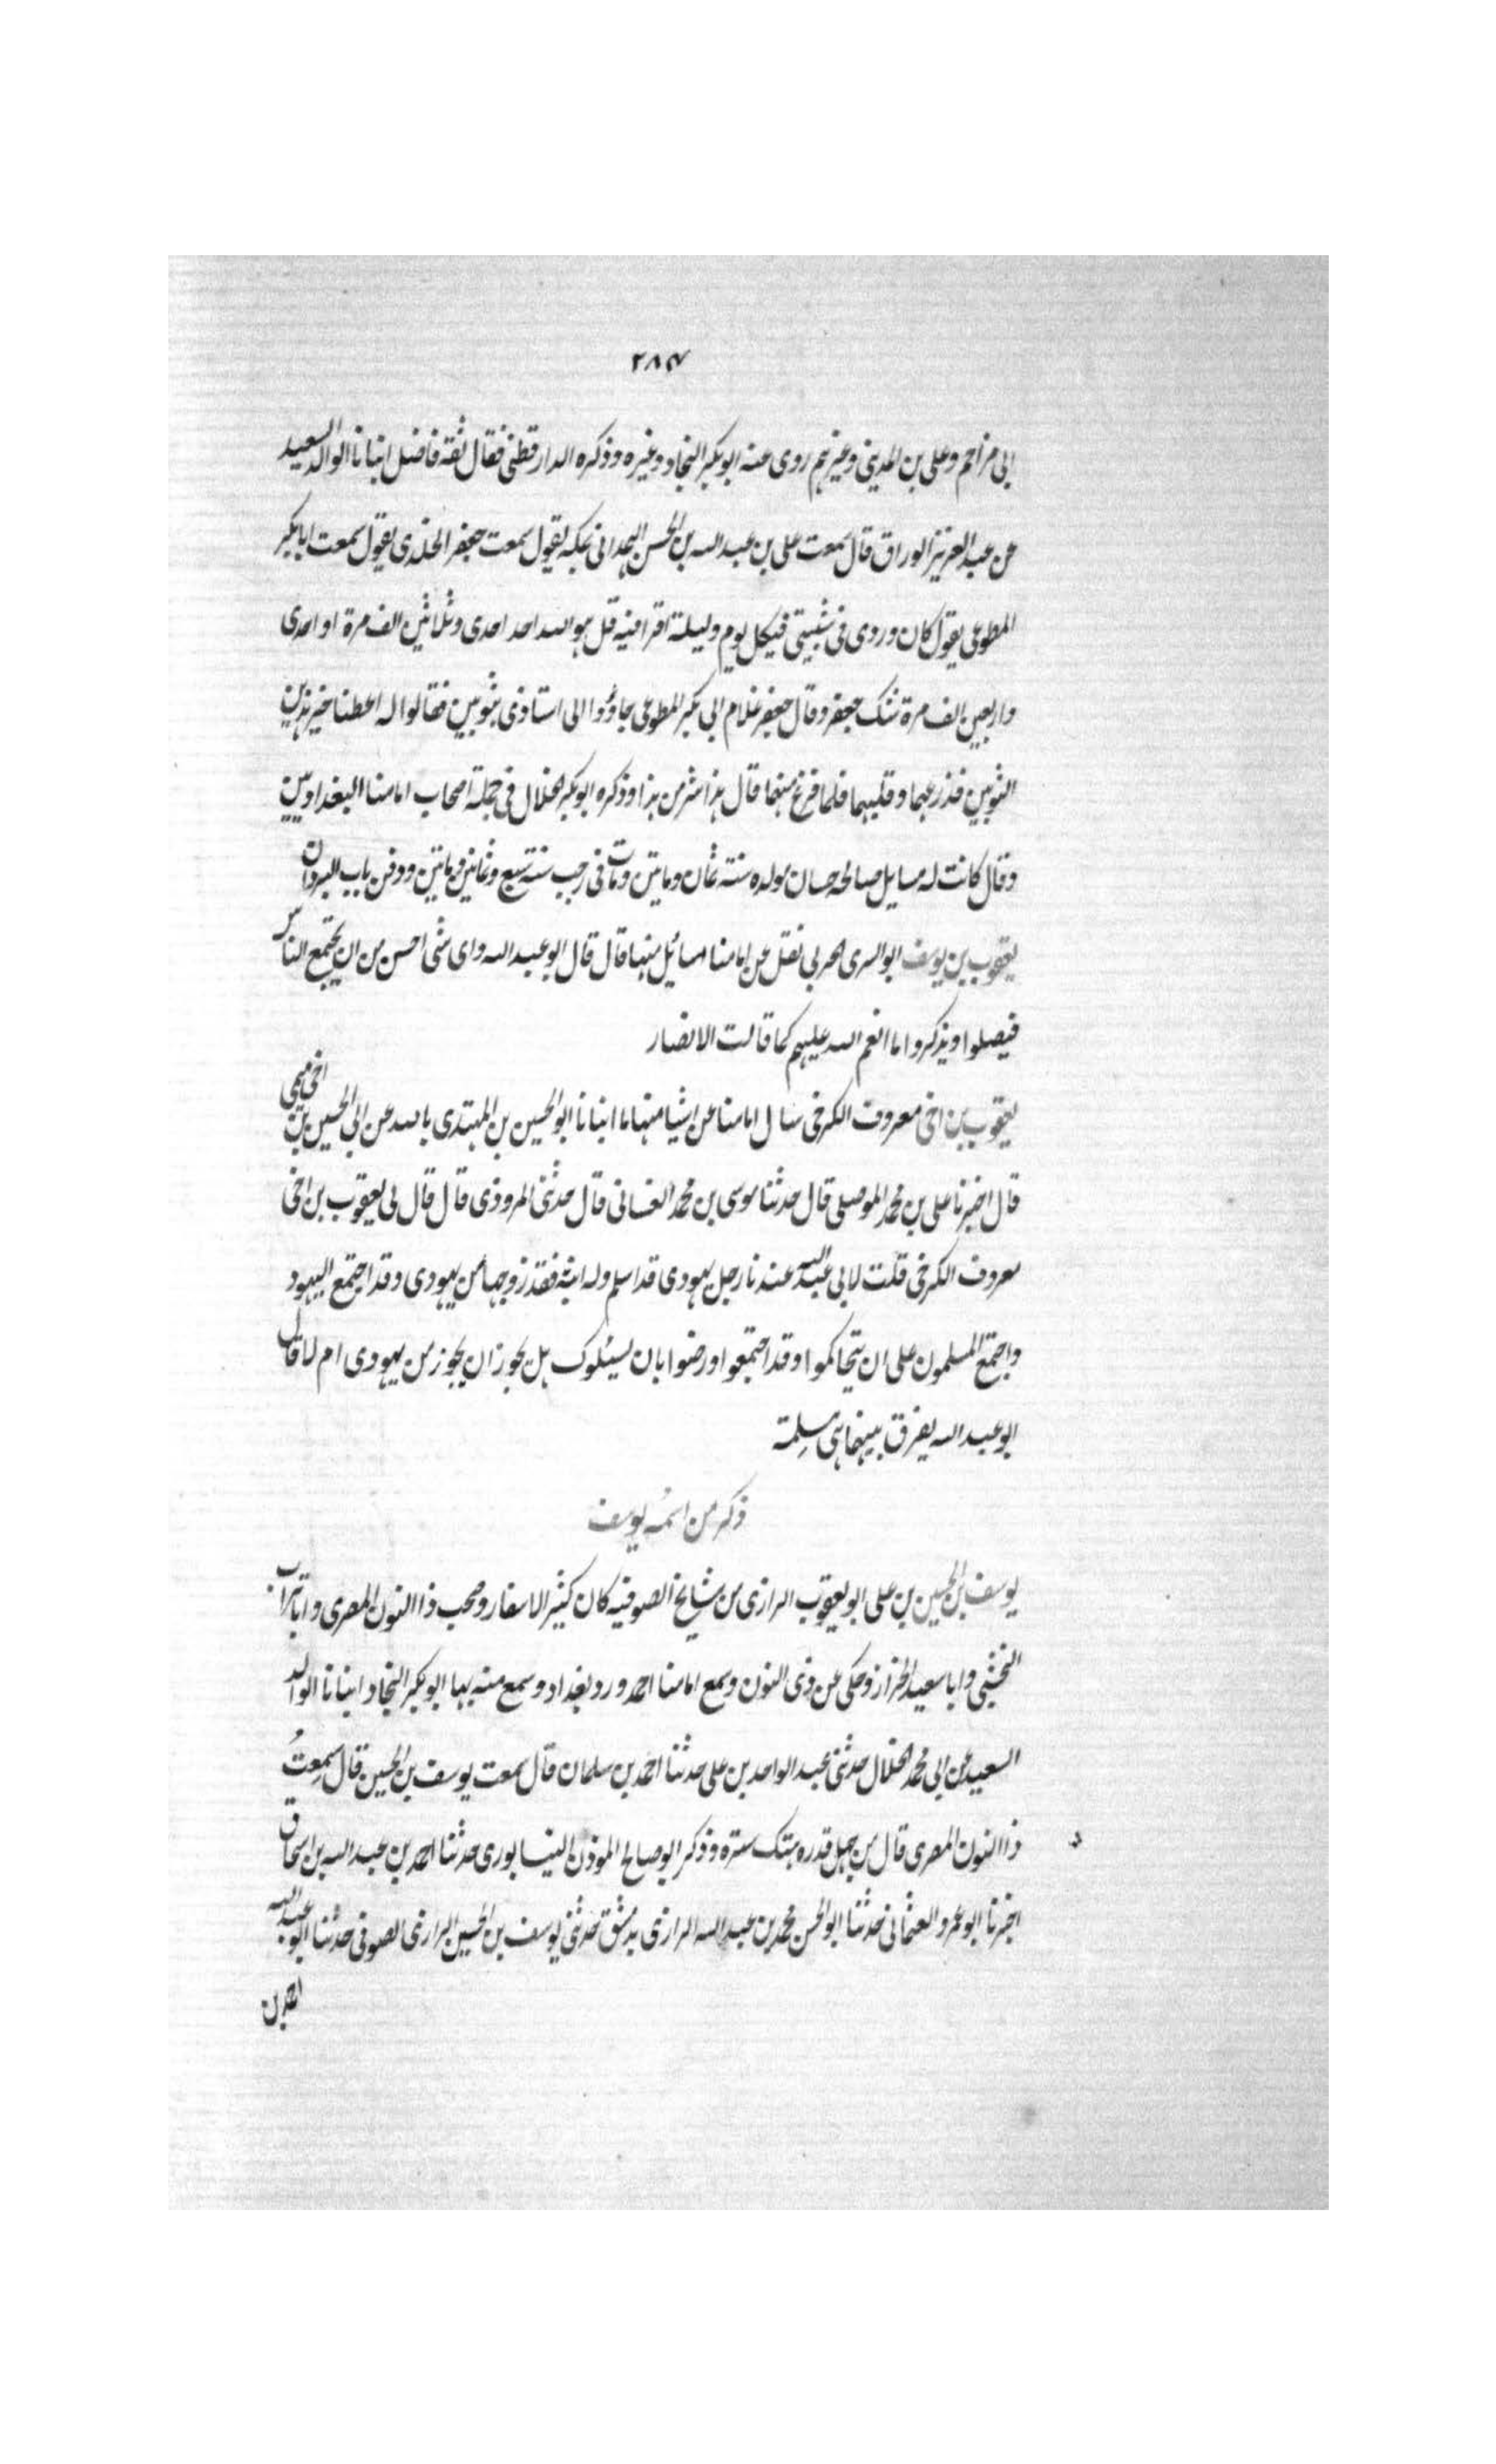 ٢٨٤
ابى مزاحم وعلى بن المدينى وغيرهم روى عنه ابو بكر النجاد وغيره وذكره الدارقطنى فقال ثقة فاضل انبانا الوالد السعيد
عن عبد العزيز الوراق قال سمعت على بن عبد الله بن الحسن الهمدانى بمكه يقول سمعت جعفر الخلدى يقول سمعت ابا بكر
المطوعى يقول كان وردى فى شبيبتى فيكل يوم وليلة اقرا فيه قل هو الله احد احدى وثلاثين الف مرة او احدى
واربعين الف مرة شك جعفر وقال جعفر غلام ابى بكر المطوعى جاؤوا الى استاذى بثوبين فقالوا له اعطنا خير هذين
الثوبين فذرعهما وقلبهما فلما فرغ منهما قال هذا شر من هذا وذكره ابو بكر الخلال فى جملة اصحاب امامنا البغداديين
وقال كانت له مسايل صالحه حسان مولده سنة ثمان وماتين ومات فى رجب سنة سبع وثمانين وماتين ودفن بباب البردان
يعقوب بن يوسف ابو السرى الحربى نقل عن امامنا مسائل منها قال قال ابو عبد الله واى شى احسن من ان يجتمع الناس
فيصلوا ويذكروا ما انعم الله عليهم كما قالت الانصار
يعقوب بن اخى معروف الكرخى سال امامنا عن اشيا منها ما انبانا ابو الحسين بن المهتدى بالله عن ابى الحسين بن اخى ميمى
قال اخبرنا على بن محمد الموصلى قال حدثنا موسى بن محمد الغسانى قال حدثنى المروذى قال قال لى يعقوب بن اخى
معروف الكرخى قلت لابى عبد الله عندنا رجل يهودى قد اسلم وله ابنة فقد زوجها من يهودى وقد اجتمع اليهود
واجتمع المسلمون على ان يتحاكموا وقد اجتمعوا ورضوا بان يسئلوك هل يجوز ان يجوز من يهودى ام لا قال
ابو عبد الله يفرق بينهما هى مسلمة
ذكر من اسمه يوسف
يوسف بن الحسين بن على ابو يعقوب الرازى من مشايخ الصوفيه كان كثير الاسفار وصحب ذا النون المصرى وابا تراب
النخشبى وابا سعيد الخراز وحكى عن ذى النون وسمع امامنا احمد ورد بغداد وسمع منه بها ابو بكر النجاد انبانا الوالد
السعيد عن ابى محمد الخلال حدثنى عبد الواحد بن على حدثنا احمد بن سلمان قال سمعت يوسف بن الحسين قال سمعتُ
ذا النون المصرى قال من جهل قدره هتك ستره وذكر ابو صالح الموذن النيسابورى حدثنا احمد بن عبد الله بن اسحاق
اخبرنا ابو عمرو العثمانى حدثنا ابو الحسن محمد بن عبد الله الرازى بدمشق حدثنى يوسف بن الحسين الرازى الصوفى حدثنا ابو عبد الله
احمد بن